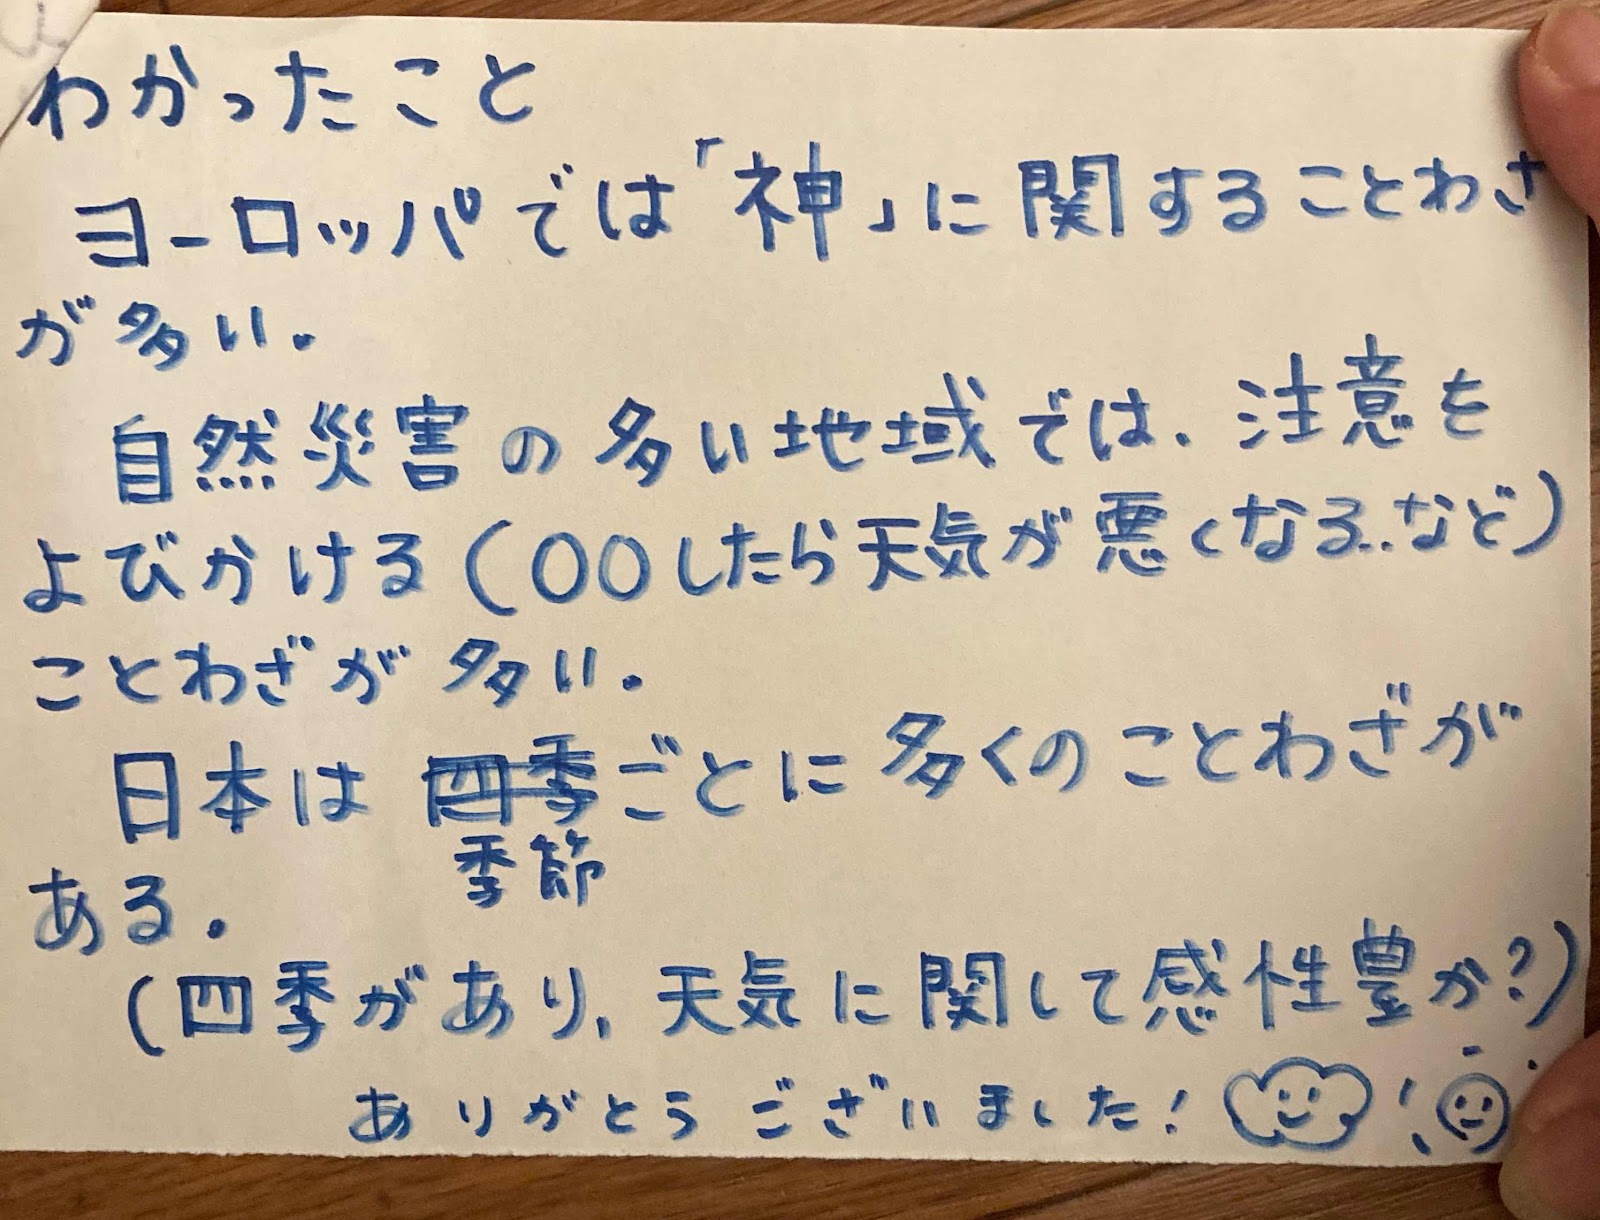 わかったこと
ヨーロッパでは「神」に関することわざ
が多い。
自然災害の多い地域では、注意を
よびかける(〇〇したら天気が悪くなる..など)
ことわざが多い。
日本は四季ごとに多くのことわざが
季節
ある。
(四季があり、天気に関して感性豊か?)
ありがとうございました!